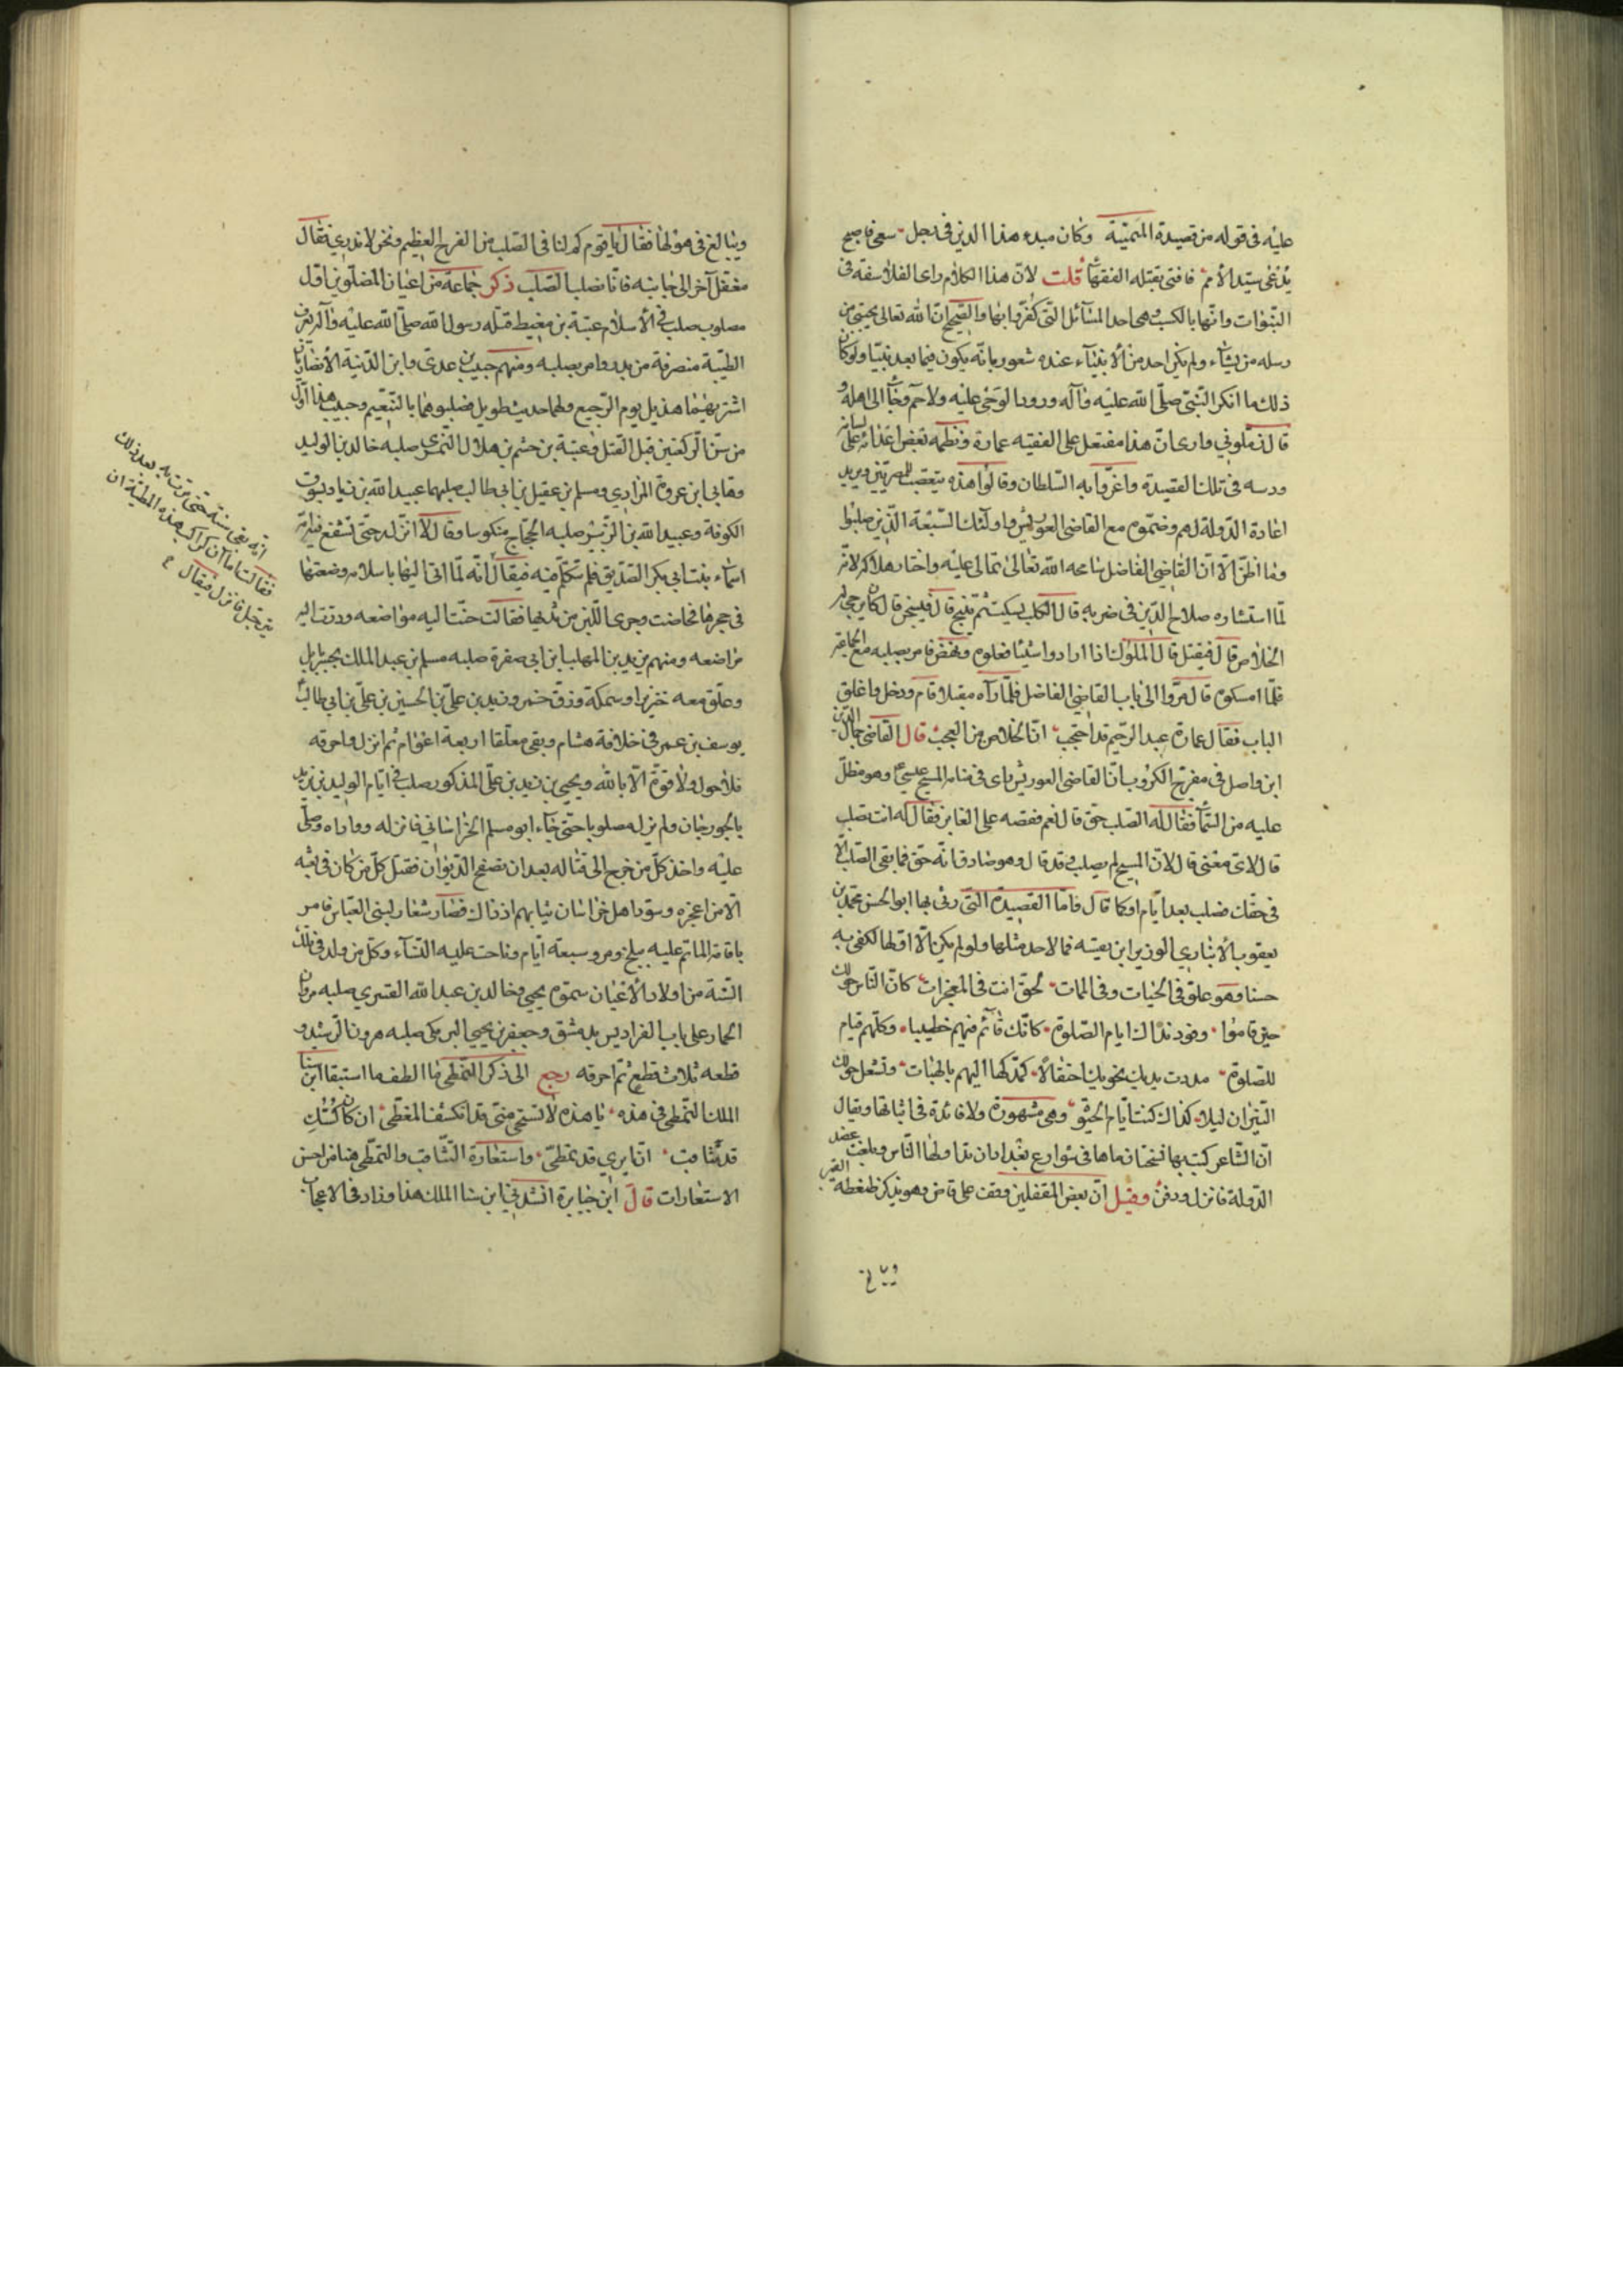 عليه فى قوله من قصيدة الميمّية وكان مبدء هذا الدين فى رجل سعى فاصبح
يدعى سيّد الأمم فافتى بقتله الفقهآء قلت لانّ هذا الكلام راى الفلاسفة فى
النبّوات وانّها بالكسب وهى احد المسآئل التى كفّروا بها والصّحيح انّ الله تعالى يجتبى من
رسله من يشآء ولم يكن احد من الأنبيآء عنده شعور بانّه يكون فيما بعد نبيّا ولو كان
ذلك ما انكر النّبىّ صلّى الله عليه وآله ورود الوحى عليه ولا حمّ وجآء الى اهله و
قال زمّلونى وارى انّ هذا مفتعل على الفقيه عمارة ونظمه بعض اعدائه على لسانه
ودسه فى تلك القصيدة واغرّوا به السّلطان وقالوا هذه يتعصب للمصرّيين ويريد
اعادة الدّولة لهم وضمّوه مع القاضى العوريس واولئك السّبعة الّذين صلبوا
وما اظنّ الّا انّ القاضى الفاضل سامحه الله تعالى تمالى عليه واختار هلاكه لانّه
لمّا استشاره صلاح الدّين فى ضربه قال الكلب يسكت ثم ينبح قال فيسجن قال كان يرجى له
الخلاص قال فيقتل قال الملوك اذا ارادوا شيئا فعلوه ونهض فامر بصلبه مع الجماعة
فلمّا امسكوه قال مرّوا الى باب القاضى الفاضل فلمّا رآه مقبلا قام ودخل واغلق
الباب فقال عمارة عبد الرّحيم قد احتجب انّ الخلاص من العجب قال القاضى جمال الدّين
ابن واصل فى مفرّج الكروب انّ القاضى العوريس راى فى منامه المسيح عيسى وهو مطلّ
عليه من السّمآء فقال له الصّلب حق قال نعم فقصه على العابر فقال له انت تصلب
قال لاىّ معنى قال لانّ المسيح لم يصلب وقد قال وهو صادق انّه حقّ فما بقى الصّلب الّا
فى حقك فصلب بعد ايّام او كما قال فامّا القصيدة التّى رثى بها ابو الحسن محمّد بن
يعقوب الأنبارى الوزير ابن بقيّه فما لاحد مثلها ولو لم يكن الّا اوّلها لكفى به
حسنا وهو علوّ فى الحيات وفى الممات لحق انت فى المعجزات كانّ النّاس حولك
حين قاموا وفود نداك ايام الصّلوة كانّك قآئم فيهم خطيبا وكلّهم قيام
للصّلوة مددت يديك نحوهم احتفالاً كمدّكها اليهم بالهبات وتشعل حولك
النّيران ليلا كذلك كنت ايّام الحيوة وهى مشهورة ولا فائدة فى اثباتها ويقال
انّ الشّاعر كتب بها نسخا ورماها فى شوارع بغداد فتداولها النّاس وبلغت عضد
الدّولة فانزل ودفن وقيل انّ بعض المغفلين وقف على قاض وهو يذكر ضغطة القبر
ويبالغ فى هولها فقال يا قوم كم لنا فى الصّلب من الفرج العظيم ونحن لا ندرى فقال
مغفل آخر الى جانبه فانّا نصلب الصّلب ذكر جماعة من اعيان المصلوبين اوّل
مصلوب صلب فى الأسلام عقبة بن معيط قتله رسول الله صلّى الله عليه وآله بعرق
الظبية منصرفه من بدر وامر بصلبه ومنهم حبيب بن عدى وابن الدّثنة الأنصاريّان
اشتريهما هذيل يوم الرّجيع ولهما حديث طويل فصلبوهما بالتّنعيم وحبيب هذا اوّل
من سنّ الرّكعتين قبل القتل وعقبة بن جشم بن هلال النّمرى صلبه خالد بن الوليد
وهانى ابن عروة المرادي ومسلم بن عقيل بن ابى طالب صلبهما عبيد الله بن زياد بسوق
الكوفة وعبيد الله بن الزّبير صلبه الحجّاج منكوسا وقال لا انزله حتّى تشفع فيه امّه
اسماء بنت ابى بكر الصّديق فلم تتكلّم فيه فيقال انّه لمّا اتى اليها باسلابه وضعتها
فى حجرها فحاضت وجرى اللّبن من ثديها فقالت حنّت اليه مواضعه ودرّت اليه
مراضعه ومنهم يزيد بن المهلب ابن ابى صفرة صلبه مسلم بن عبد الملك بجسر بابل
وعلّق معه خنزيرا وسمكة وزقّ خمر وزيد بن علىّ بن الحسين بن علىّ بن ابى طالب
يوسف بن عمر فى خلافة هشام وبقى معلّقا اربعة اعوام ثم انزل واحرقه
فلا حول ولا قوّة الّا بالله ويحيى بن زيد بن علىّ المذكور صلب فى ايّام الوليد بن يزيد
بالجورجان ولم يزل مصلوبا حتى جآء ابو مسلم الخراسانى فانزله وواراه وصلّى
عليه واخذ كلّ من خرج الى قتاله بعد ان تصفح الدّيوان فقتل كلّ من كان فى بعثه
الّا من اعجزه وسوّد اهل خراسان ثيابهم اذ ذاك فصار شعار لبنى العبّاس فامر
باقامة الماتم عليه ببلخ ومرو سبعة ايّام وناحت عليه النّسآء وكلّ من ولد فى تلك
السّنة من اولاد الأعيان سمّوه يحيى وخالد بن عبد الله القسرى صلبه مروان
الحمار على باب الفراديس بدمشق وجعفر بن يحيى البرمكى صلبه هرون الرّشيد و
قطعه ثلاث قطع ثم احرقه رجع الى ذكر التّمطّى فما الطف ما استبقا ابن سنا
الملك التّمطى فى هذه يا هذه لا تستحى منّى قد انكشف المغطّى ان كان كُسُّكِ
قد تثاءب انّ ايرى قد تمطّىّ واستعارة التّثاءب والتمطّى هنا من احسن
الاستعارات قال ابن جبارة انشدنى ابن سنا الملك هذا وزاد فى الاعجاب
انّه بقى سنة حتّى مرّت به بعد ذلك
فقالت اما آن لراكب هذه المطيّة ان
يترجّل فانزل فيقال